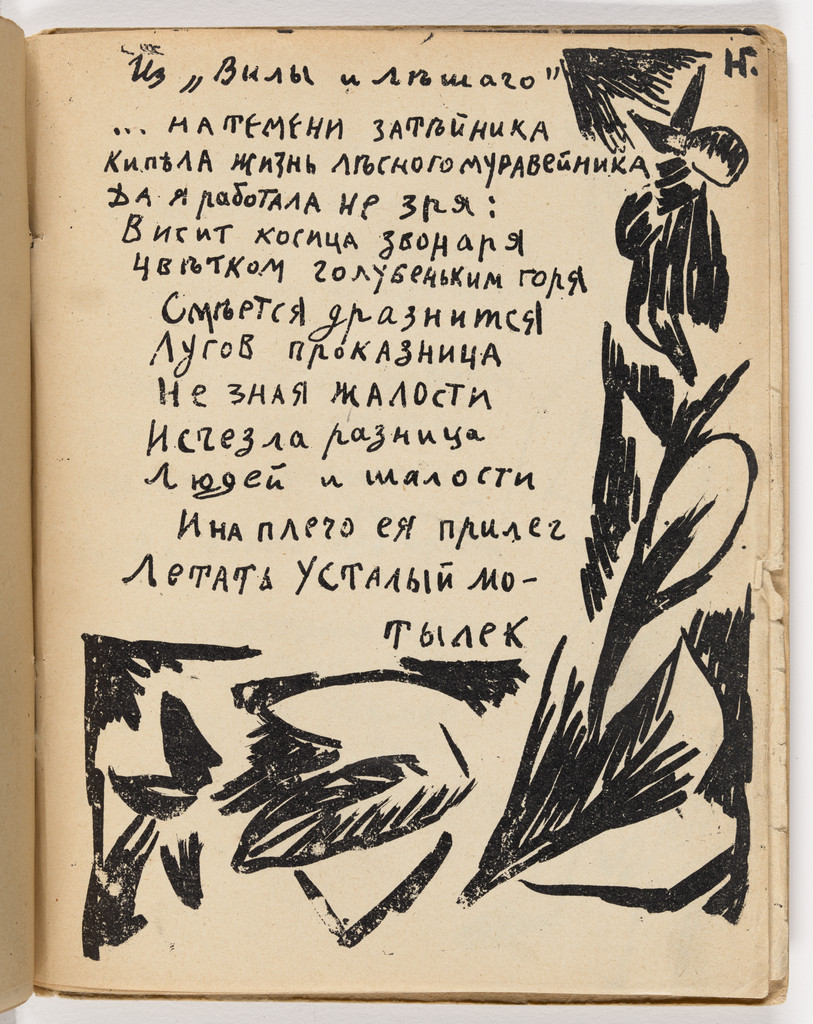 Из „Вилы и лѣшаго"
Н.
... НА ТЕМЕНИ ЗАТѢЙНИКА
Кипѣла жизнь лѣсного муравейника
Да я работала не зря:
Висит косица звонаря
Цвѣтком голубеньким горя
Смѣется дразнится
Лугов проказница
Не зная жалости
Исчезла разница
Людей и шалости
И на плечо ея прилег
Летать усталый мо-
тылек